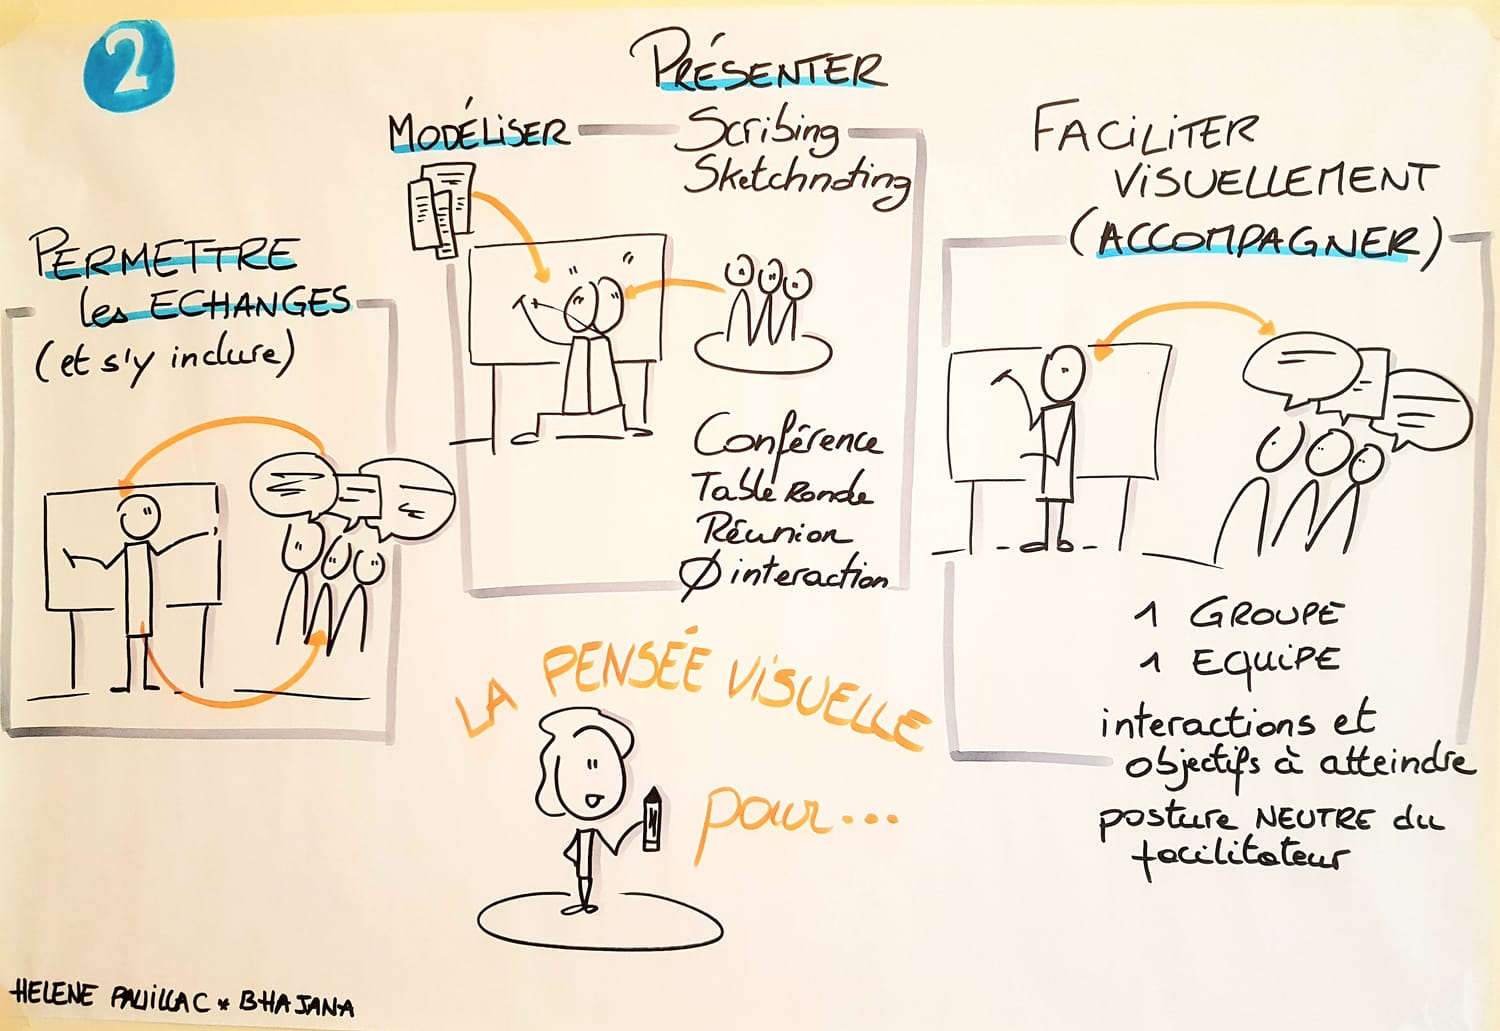 2
PERMETTRE
les ECHANGES
(et s'y inclure)
MODÉLISER
PRÉSENTER
Scribing
Sketchnoting
Conférence
Table Ronde
Réunion
Ø interaction
FACILITER
VISUELLEMENT
(ACCOMPAGNER)
1 GROUPE
1 EQUIPE
interactions et
objectifs à atteindre
posture NEUTRE du
facilitateur
LA PENSÉE VISUELLE
pour...
HELENE PAUILLAC * BHAJANA